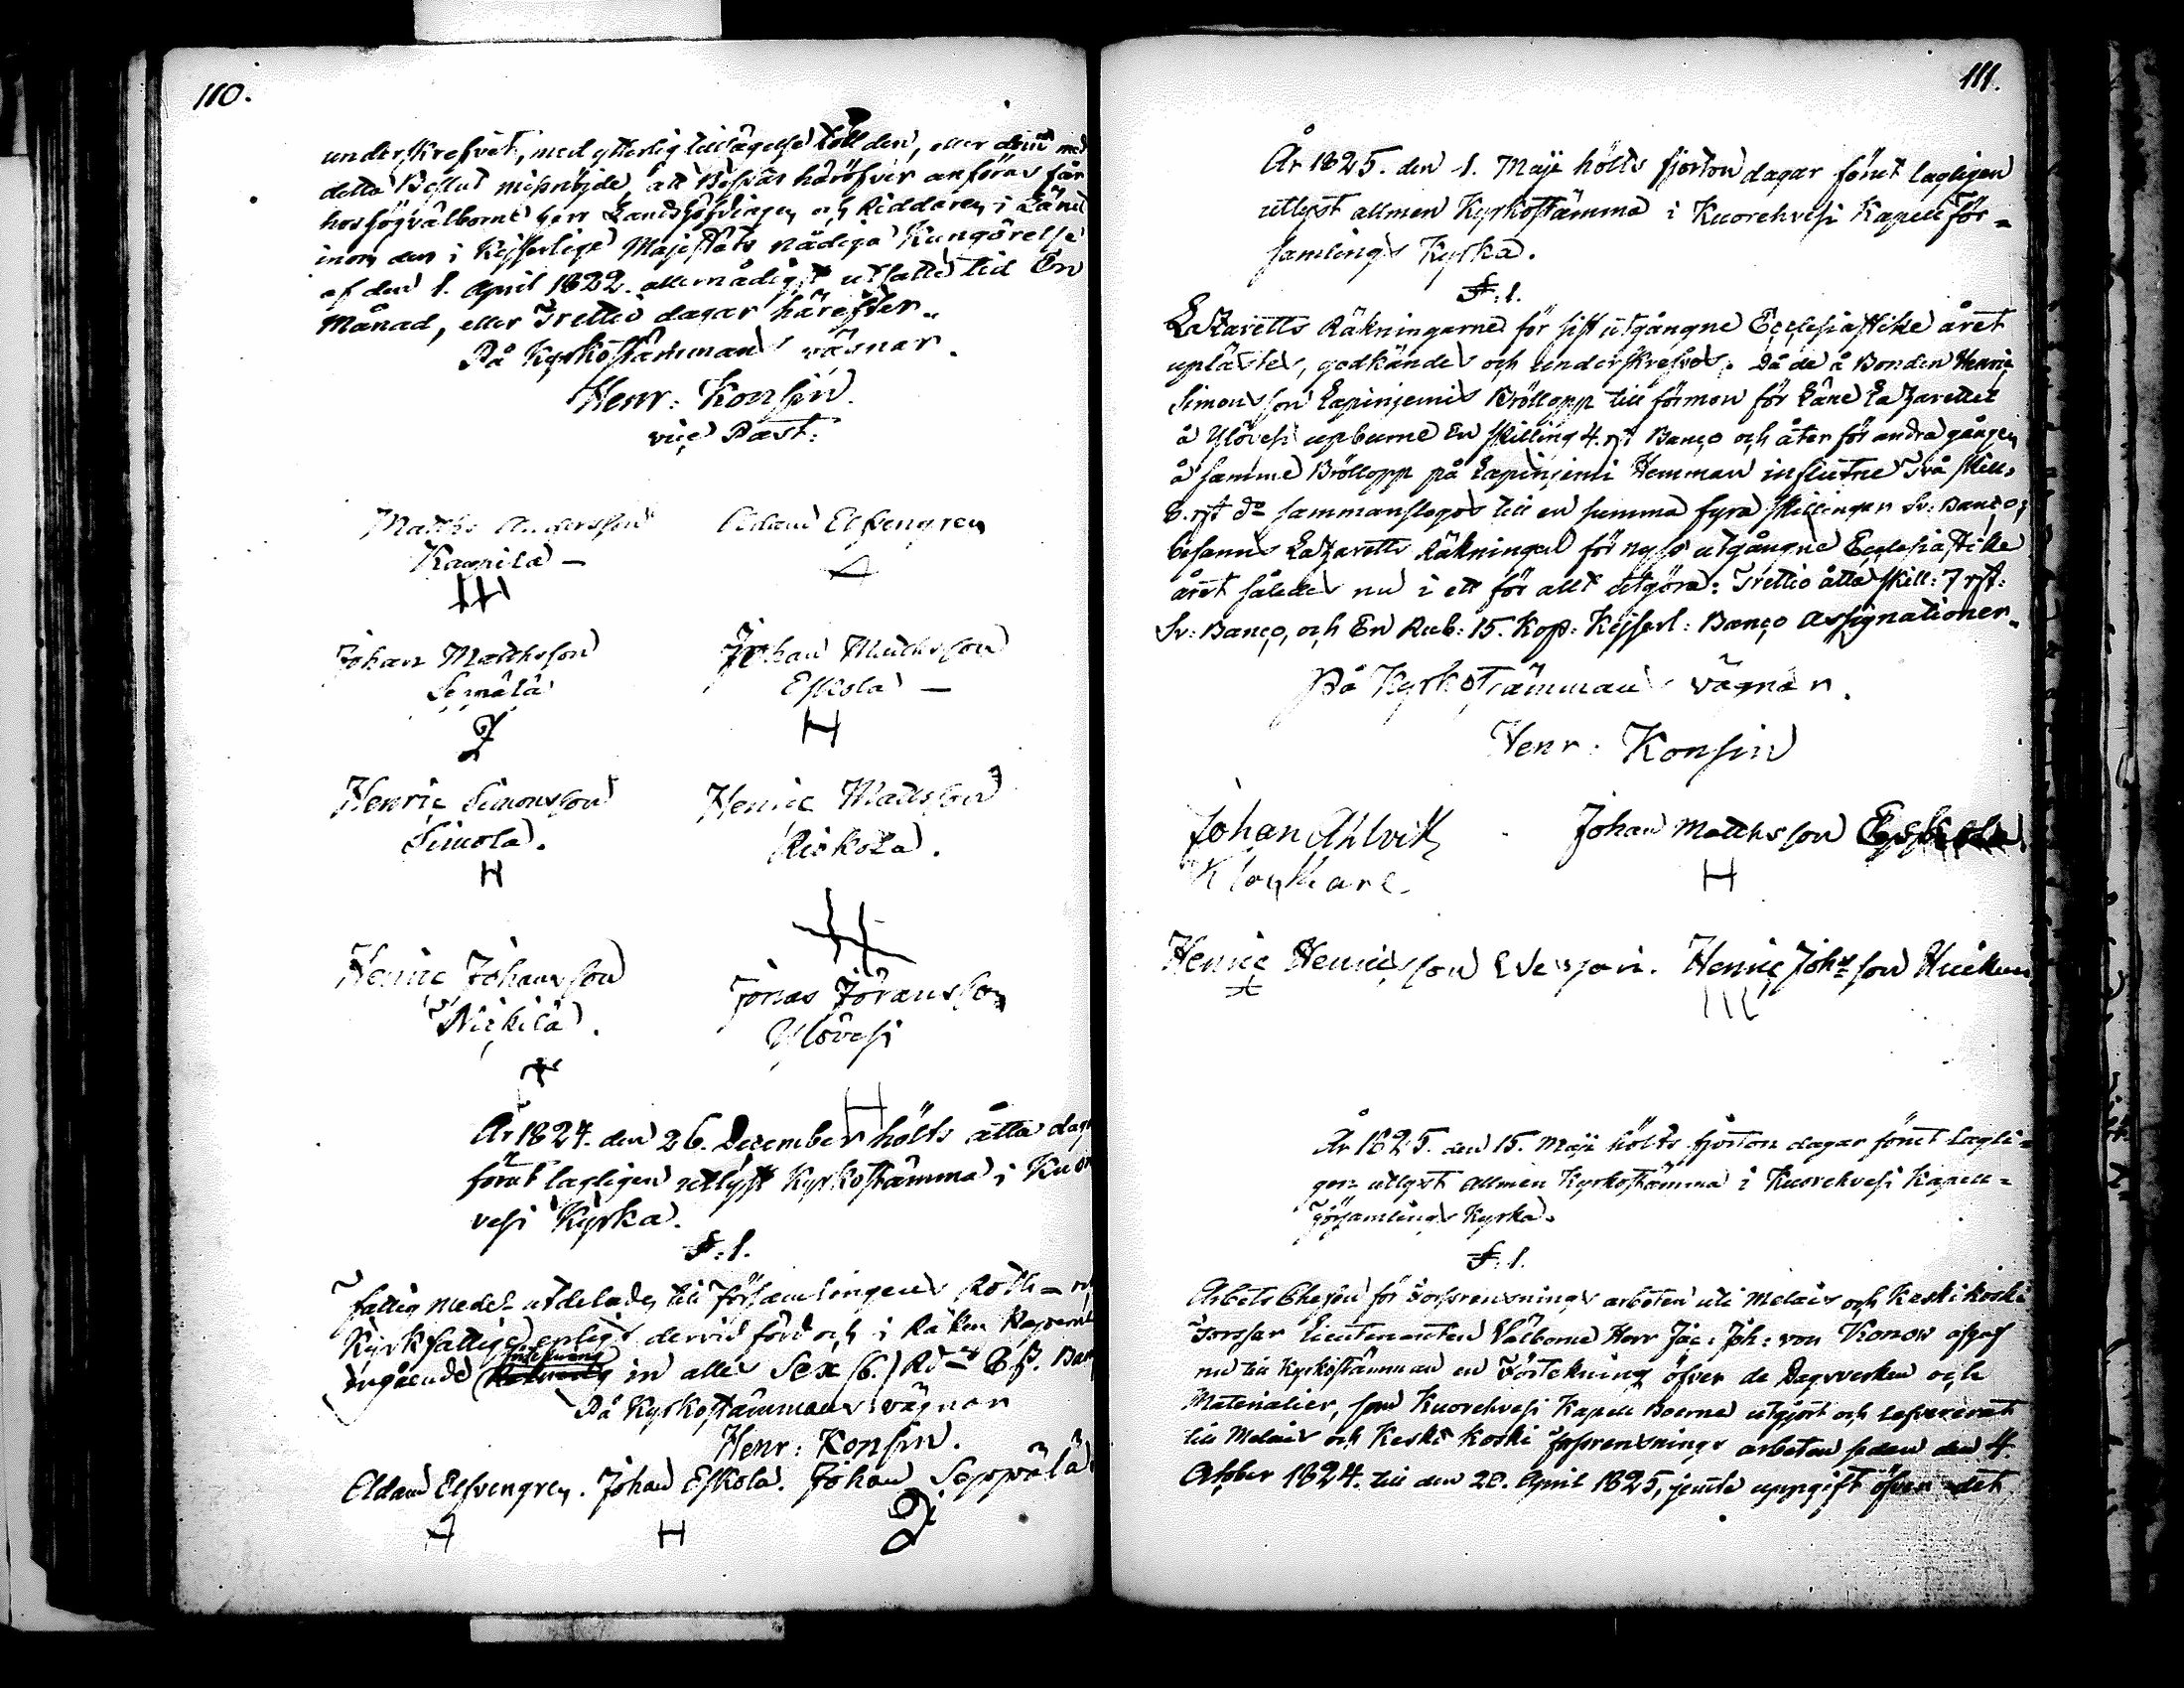 110.
underskrefvit, med ytterlig tillsägelse till den, eller dem med
detta Beslut missnöjde, att Besvär häröfver anföras får
hos högvälborne herr Landshöfdingen och Riddaren i Länet
inom den i Kejserlige Majestäts nådiga Kungörelse
af den 1. April 1822. allernådigst utsatte tid En
Månad, eller Trettio dagar härefter.
På Kyrkostämmans vägnar.
Henr: Konsin.
vice Past:
Matths Andersson Adam Elfvengren
Kaupila –
Johan Matthsson Johan Mathsson
Seppälä Eskola –
Henric Simonsson Henric Mattsson
Simola. Riskola.
H
Henric Johansson Jonas Göransson
Nickilä. Ylövesi
År 1824. den 26. December hölts åtta dagar
förut lagligen utlyst Kyrkostämma i Kuore
vesi Kyrka.
§: 1.
Fattig medel utdelades till Församlingens Roth-
Kyrkfattige, enligt dervid förd och i Räken
ingående in alles Sex (6.) Rd
På Kyrkostämmans vägnar
Henr: Konsin.
Adam Elfvengren. Johan Eskola. Johan Seppälä
H
111.
År 1825. den 1. Maji hölts fjorton dagar förut lagligen
utlyst allmen Kyrkostämma i Kuorehvesi Kapell För-
samlings Kyrka.
§: 1.
Lazaretts Räkningarne för sist utgångne Ecclesiastike året
uplästes, godkändes och underskrefvos. Då de å Bonden Henric
Simonsson Lapinjemis Bröllopp till förmon för Läne Lazarettet
å Ylövesi upburne En skilling 4. rst Banco och åter för andra gången
å samme Bröllopp på Lapinjemi Hemman influtne Två skill.
8. rst do sammanslogos till en summa fyra skillingar Sv: Banco;
befanns Lazaretts Räkningen för nyss utgångne Ecclesiastike
året således nu i ett för allt utgöra: Trettio åtta skill: 7 rst:
Sv: Banco, och En Rub: 15. Kop: Kejserl: Banco Assignationer.
På Kyrkostämmans vägnar.
Henr: Konsin
Johan Ahlvik Johan Matthsson Eskola
Klockare. H
Henric Henricsson Henric Johsson
År 1825. den 15. Maji hölts fjorton dagar förut lagli-
gen utlyst Allmen Kyrkostämma i Kuorehvesi Kapell-
Församlings Kyrka.
§: 1.
Arbets Chefen för Forsrensnings arbeten uti Melais och Keskikoski
Forssar Lieutenanten Välborne Herr Jac: Joh: von Konow afgaf
nu till Kyrkostämman en Förtekning öfver de Dagsverken och
Materialier, som Kuorehvesi Kapell Boerne utgjort och lefvererat
till Melais och Keski koski forsrensnings arbeten sedan den 4.
October 1824. till den 28. April 1825, jemte uppgift öfver det